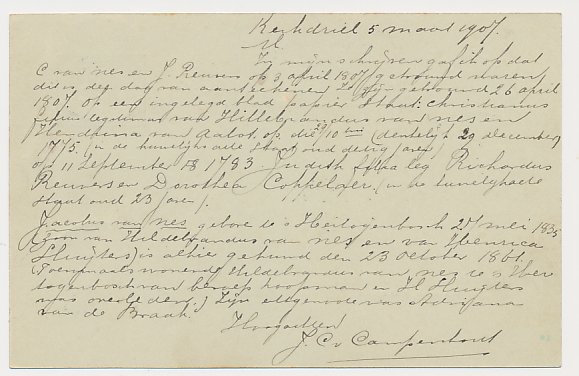 Kerkdriel 5 maart 1907.
M.
In mijn schrijven gaf ik op dat
C van nes en J. Reuvers op 3 april 1807 getrouwd waren
dit is de dag van aanteekenen. Zij zijn getrouwd 26 april
1807. Op een ingelegd blad papier staat: Christianus
filius legitimus van Hillebrandus van nes en
Hendrina van Aalst, op die 10 (denkelijk 29 december
1775 (in de huwelijksakte staat oud dertig jaren)
op 11 September 1783 Judith filia leg Richardus
Reuvers en Dorothea Coppelaer. (in de huwelijksakte
staat oud 23 jaren).
Jacobus van nes geboren te 's Hertogenbosch 27 mei 1835
(zoon van Hildebrandus van nes en van Henrica
Sluijters) is alhier getrouwd den 23 October 1861.
(Toenmaals wonende Hildebrandus van nes te 's Her
togenbosch van beroep koopman en H Sluijters
was overleden.) Zijn echtgenoote was Adriana
van de Braak.
Hoogachtend
J. C. v Campenhout